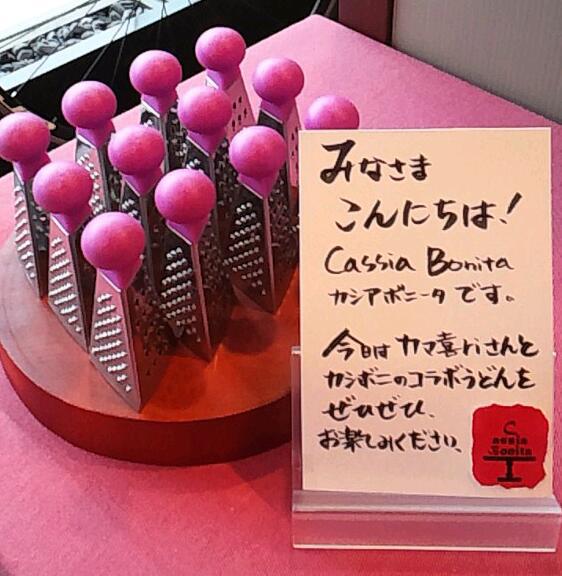 みなさま
こんにちは！
Cassia Bonita
カシアボニータ です。
今日は カマ喜riさんと
カシボニのコラボうどんを
ぜひぜひ、
お楽しみください、
Cassia
Bonita